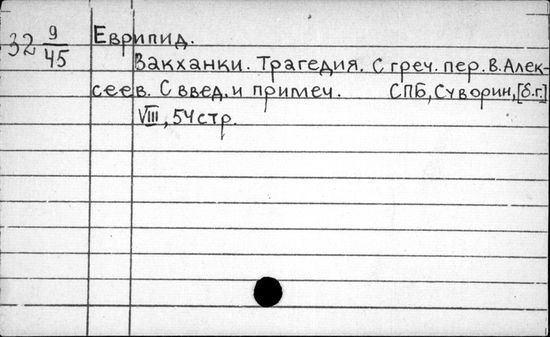 32 9/45
Еврипид.
Вакханки. Трагедия. С греч. пер. В. Алек-
сеев. С введ. и примеч. СПБ, Суворин, [б.г.]
VIII, 54 стр.